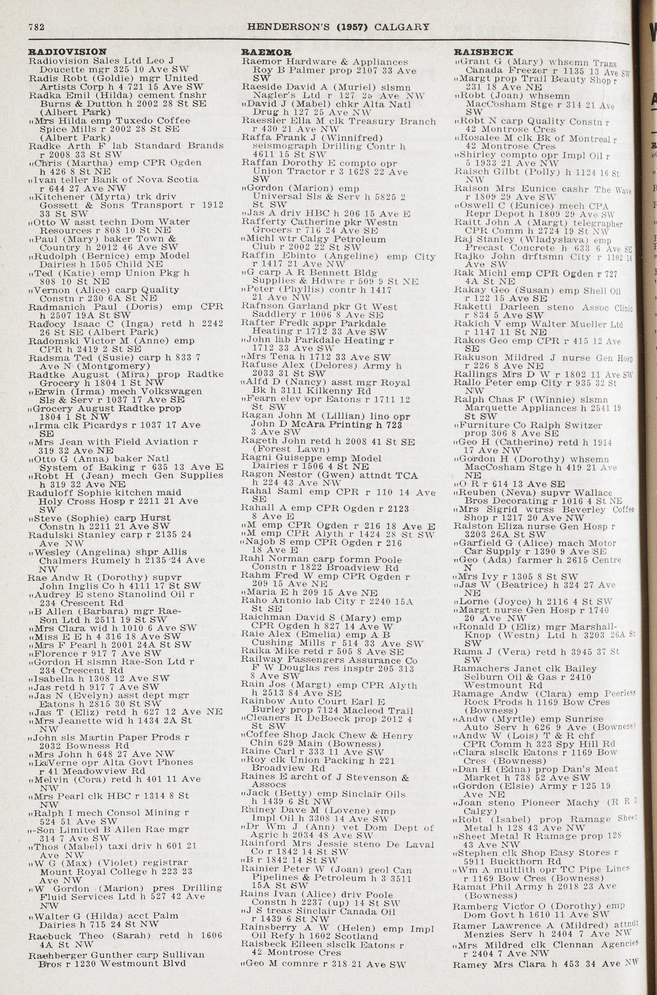 782
HENDERSON'S (1957) CALGARY
RADIOVISION
Radiovision Sales Ltd Leo J
Doucette mgr 325 10 Ave SW
Radis Robt (Goldie) mgr United
Artists Corp h 4 721 15 Ave SW
Radka Emil (Hilda) cement fnshr
Burns & Dutton h 2002 28 St SE
(Albert Park)
"Mrs Hilda emp Tuxedo Coffee
Spice Mills r 2002 28 St SE
(Albert Park)
Radke Arth F lab Standard Brands
r 2008 33 St SW
"Chris (Martha) emp CPR Ogden
h 426 8 St NE
"Ivan teller Bank of Nova Scotia
r 644 27 Ave NW
"Kitchener (Myrta) trk driv
Gossett & Sons Transport r 1912
33 St SW
"Otto W asst techn Dom Water
Resources r 808 10 St NE
"Paul (Mary) baker Town &
Country h 2012 46 Ave SW
"Rudolph (Bernice) emp Model
Dairies h 1505 Child NE
"Ted (Katie) emp Union Pkg h
808 10 St NE
"Vernon (Alice) carp Quality
Constn r 230 6A St NE
Radmanich Paul (Doris) emp CPR
h 2507 19A St SW
Radocy Isaac C (Inga) retd h 2242
26 St SE (Albert Park)
Radomski Victor M (Anne) emp
CPR h 2419 2 St SE
Radsma Ted (Susie) carp h 833 7
Ave N (Montgomery)
Radtke August (Mira) prop Radtke
Grocery h 1804 1 St NW
"Erwin (Irma) mech Volkswagen
Sls & Serv r 1037 17 Ave SE
"Grocery August Radtke prop
1804 1 St NW
"Irma clk Picardys r 1037 17 Ave
SE
"Mrs Jean with Field Aviation r
319 32 Ave NE
"Otto G (Anna) baker Natl
System of Baking r 635 13 Ave E
"Robt H (Jean) mech Gen Supplies
h 319 32 Ave NE
Raduloff Sophie kitchen maid
Holy Cross Hosp r 2211 21 Ave
SW
"Steve (Sophie) carp Hurst
Constn h 2211 21 Ave SW
Radulski Stanley carp r 2135 24
Ave NW
"Wesley (Angelina) shpr Allis
Chalmers Rumely h 2135 24 Ave
NW
Rae Andw R (Dorothy) supvr
John Inglis Co h 4111 17 St SW
"Audrey E steno Stanolind Oil r
234 Crescent Rd
"B Allen (Barbara) mgr Rae-
Son Ltd h 2511 19 St SW
"Mrs Clara wid h 1010 6 Ave SW
"Miss E E h 4 316 18 Ave SW
"Mrs F Pearl h 2001 24A St SW
"Florence r 917 7 Ave SW
"Gordon H slsmn Rae-Son Ltd r
234 Crescent Rd
"Isabella h 1308 12 Ave SW
"Jas retd h 917 7 Ave SW
"Jas N (Evelyn) asst dept mgr
Eatons h 2815 30 St SW
"Jas T (Eliz) retd h 627 12 Ave NE
"Mrs Jeanette wid h 1434 2A St
NW
"John sls Martin Paper Prods r
2032 Bowness Rd
"Mrs John h 648 27 Ave NW
"LaVerne opr Alta Govt Phones
r 41 Meadowview Rd
"Melvin (Cora) retd h 401 11 Ave
NW
"Mrs Pearl clk HBC r 1314 8 St
NW
"Ralph I mech Consol Mining r
524 51 Ave SW
"-Son Limited B Allen Rae mgr
314 7 Ave SW
"Thos (Mabel) taxi driv h 601 21
Ave NW
"W G (Max) (Violet) registrar
Mount Royal College h 223 23
Ave NW
"W Gordon (Marion) pres Drilling
Fluid Services Ltd h 527 42 Ave
NW
"Walter G (Hilda) acct Palm
Dairies h 715 24 St NW
Raebuck Theo (Sarah) retd h 1606
4A St NW
Raehberger Gunther carp Sullivan
Bros r 1230 Westmount Blvd
RAEMOR
Raemor Hardware & Appliances
Roy B Palmer prop 2107 33 Ave
SW
Raeside David A (Muriel) slsmn
Nagler's Ltd r 127 25 Ave NW
"David J (Mabel) chkr Alta Natl
Drug h 127 25 Ave NW
Raessler Ella M clk Treasury Branch
r 430 21 Ave NW
Raffa Frank J (Winnifred)
seismograph Drilling Contr h
4611 15 St SW
Raffan Dorothy E compto opr
Union Tractor r 3 1628 22 Ave
SW
"Gordon (Marion) emp
Universal Sls & Serv h 5825 2
St SW
"Jas A driv HBC h 206 15 Ave E
Rafferty Catherine pkr Westn
Grocers r 716 24 Ave SE
"Michl wtr Calgy Petroleum
Club r 2002 22 St SW
Raffin Ebinto (Angeline) emp City
r 1417 21 Ave NW
"G carp A R Bennett Bldg
Supplies & Hdwre r 509 9 St NE
"Peter (Phyllis) contr h 1417
21 Ave NW
Rafnson Garland pkr Gt West
Saddlery r 1006 8 Ave SE
Rafter Fredk appr Parkdale
Heating r 1712 33 Ave SW
"John lab Parkdale Heating r
1712 33 Ave SW
"Mrs Tena h 1712 33 Ave SW
Rafuse Alex (Delores) Army h
2033 31 St SW
"Alfd D (Nancy) asst mgr Royal
Bk h 3111 Kilkenny Rd
"Fearn elev opr Eatons r 1711 12
St SW
Ragan John M (Lillian) lino opr
John D McAra Printing h 723
3 Ave SW
Rageth John retd h 2008 41 St SE
(Forest Lawn)
Ragni Guiseppe emp Model
Dairies r 1506 4 St NE
Ragon Nestor (Gwen) attndt TCA
h 224 43 Ave NW
Rahal Saml emp CPR r 110 14 Ave
SE
Rahall A emp CPR Ogden r 2123
8 Ave E
"M emp CPR Ogden r 216 18 Ave E
"M emp CPR Alyth r 1424 28 St SW
"Najob S emp CPR Ogden r 216
18 Ave E
Rahl Norman carp formn Poole
Constn r 1822 Broadview Rd
Rahm Fred W emp CPR Ogden r
209 15 Ave NE
"Maria E h 209 15 Ave NE
Raho Antonio lab City r 2240 15A
St SE
Raichman David S (Mary) emp
CPR Ogden h 837 14 Ave W
Raie Alex (Emelia) emp A B
Cushing Mills r 514 33 Ave SW
Raika Mike retd r 505 8 Ave SE
Railway Passengers Assurance Co
F W Douglas res insptr 205 313
8 Ave SW
Rain Jos (Margt) emp CPR Alyth
h 2513 84 Ave SE
Rainbow Auto Court Earl E
Burley prop 7124 Macleod Trail
"Cleaners R DeBoeck prop 2012 4
St SW
"Coffee Shop Jack Chew & Henry
Chin 629 Main (Bowness)
Raine Carl r 333 11 Ave SW
"Roy clk Union Packing h 221
Broadview Rd
Raines E archt of J Stevenson &
Assocs
"Jack (Betty) emp Sinclair Oils
h 1439 6 St NW
Rainey Dave M (Lovene) emp
Impl Oil h 3308 14 Ave SW
"Dr Wm J (Ann) vet Dom Dept of
Agric h 2034 48 Ave SW
Rainford Mrs Jessie steno De Laval
Co r 1842 14 St SW
"B r 1842 14 St SW
Rainier Peter W (Joan) geol Can
Pipelines & Petroleum h 3 3511
15A St SW
Rains Ivan (Alice) driv Poole
Constn h 2237 (up) 14 St SW
"J S treas Sinclair Canada Oil
r 1439 6 St NW
Rainsberry A W (Helen) emp Impl
Oil Refy h 1602 Scotland
Raisbeck Eileen slsclk Eatons r
42 Montrose Cres
"Geo M comnre r 318 21 Ave SW
RAISBECK
"Grant G (Mary) whsemn Trans
Canada Freezer r 1135 13 Ave SW
"Margt prop Trail Beauty Shop r
231 18 Ave NE
"Robt (Joan) whsemn
MacCosham Stge r 314 21 Ave
SW
"Robt N carp Quality Constn r
42 Montrose Cres
"Rosalee M clk Bk of Montreal r
42 Montrose Cres
"Shirley compto opr Impl Oil r
5 1933 21 Ave NW
Raisch Gilbt (Polly) h 1124 16 St
NW
Raison Mrs Eunice cashr The Wave
r 1809 29 Ave SW
"Oswell C (Eunice) mech CPA
Repr Depot h 1809 29 Ave SW
Raitt John A (Margt) telegrapher
CPR Comm h 2724 19 St NW
Raj Stanley (Wladyslava) emp
Precast Concrete h 633 6 Ave SE
Rajko John drftsmn City r 1102
Rak Michl emp CPR Ogden r 727
4A St NE
Rakay Geo (Susan) emp Shell Oil
r 122 15 Ave SE
Raketti Darleen steno Assoc Clinic
r 834 5 Ave SW
Rakich V emp Walter Mueller Ltd
r 1147 11 St NE
Rakos Geo emp CPR r 415 12 Ave
SE
Rakuson Mildred J nurse Gen Hosp
r 226 8 Ave NE
Rallings Mrs D W r 1802 11 Ave SW
Rallo Peter emp City r 935 32 St
NW
Ralph Chas F (Winnie) slsmn
Marquette Appliances h 2541 19
St SW
"Furniture Co Ralph Switzer
prop 306 8 Ave SE
"Geo H (Catherine) retd h 1914
17 Ave NW
"Gordon H (Dorothy) whsemn
MacCosham Stge h 419 21 Ave
NE
"O R r 614 13 Ave SE
"Reuben (Neva) supvr Wallace
Bros Decorating r 1016 4 St NE
"Mrs Sigrid wtrss Beverley Coffee
Shop r 1217 20 Ave NW
Ralston Eliza nurse Gen Hosp r
3203 26A St SW
"Garfield G (Alice) mach Motor
Car Supply r 1390 9 Ave SE
"Geo (Ada) farmer h 2615 Centre
N
"Mrs Ivy r 1305 8 St SW
"Jas W (Beatrice) h 324 27 Ave
NE
"Lorne (Joyce) h 2116 4 St SW
"Margt nurse Gen Hosp r 1740
20 Ave NW
"Ronald D (Eliz) mgr Marshall-
Knop (Westn) Ltd h 3203 26A St
SW
Rama J (Vera) retd h 3945 37 St
SW
Ramachers Janet clk Bailey
Selburn Oil & Gas r 2410
Westmount Rd
Ramage Andw (Clara) emp Peerless
Rock Prods h 1169 Bow Cres
(Bowness)
"Andw (Myrtle) emp Sunrise
Auto Serv h 626 9 Ave (Bowness)
"Andw W (Lois) T & R chf
CPR Comm h 323 Spy Hill Rd
"Clara slsclk Eatons r 1169 Bow
Cres (Bowness)
"Dan H (Edna) prop Dan's Meat
Market h 738 52 Ave SW
"Gordon (Elsie) Army r 125 19
Ave NE
"Joan steno Pioneer Machy (R R 3
Calgy)
"Robt (Isabel) prop Ramage Sheet
Metal h 128 43 Ave NW
"Sheet Metal R Ramage prop 128
43 Ave NW
"Stephen clk Shop Easy Stores r
5911 Buckthorn Rd
"Wm A multlith opr TC Pipe Lines
r 1169 Bow Cres (Bowness)
Ramat Phil Army h 2018 23 Ave
(Bowness)
Ramberg Victor O (Dorothy) emp
Dom Govt h 1610 11 Ave SW
Ramer Lawrence A (Mildred) attndt
Menzies Serv h 2404 7 Ave NW
"Mrs Mildred clk Clennan Agencies
r 2404 7 Ave NW
Ramey Mrs Clara h 453 34 Ave NW